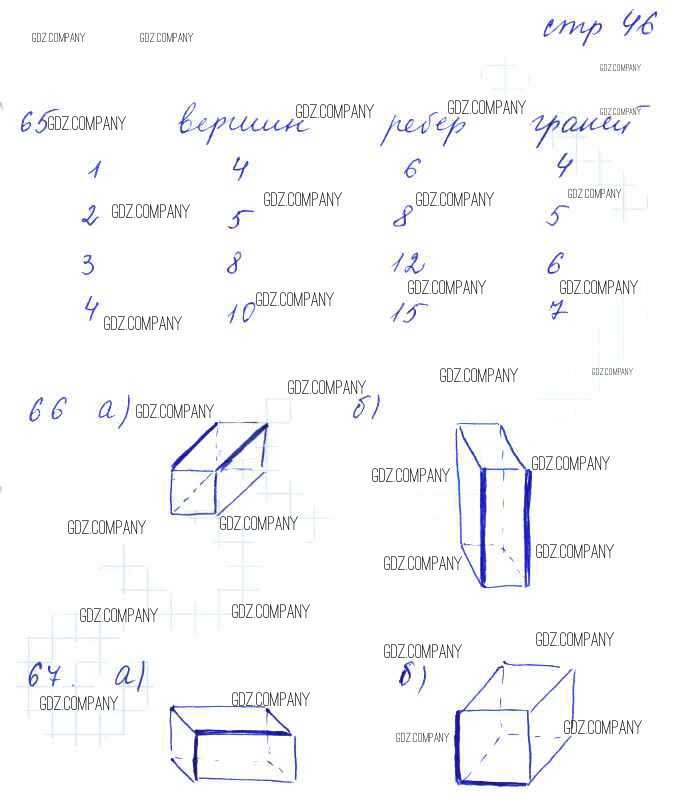 стр 46
GDZ.COMPANY GDZ.COMPANY
GDZ.COMPANY
65 GDZ.COMPANY вершин GDZ.COMPANY ребер GDZ.COMPANY граней GDZ.COMPANY
1 4 6 4
2 GDZ.COMPANY 5 GDZ.COMPANY 8 GDZ.COMPANY 5 GDZ.COMPANY
3 8 12 6
GDZ.COMPANY GDZ.COMPANY
4 GDZ.COMPANY 10 GDZ.COMPANY 15 7
GDZ.COMPANY GDZ.COMPANY GDZ.COMPANY
66 а) GDZ.COMPANY б)
GDZ.COMPANY GDZ.COMPANY
GDZ.COMPANY GDZ.COMPANY
GDZ.COMPANY GDZ.COMPANY
GDZ.COMPANY GDZ.COMPANY
GDZ.COMPANY GDZ.COMPANY
67. а) б)
GDZ.COMPANY GDZ.COMPANY
GDZ.COMPANY GDZ.COMPANY